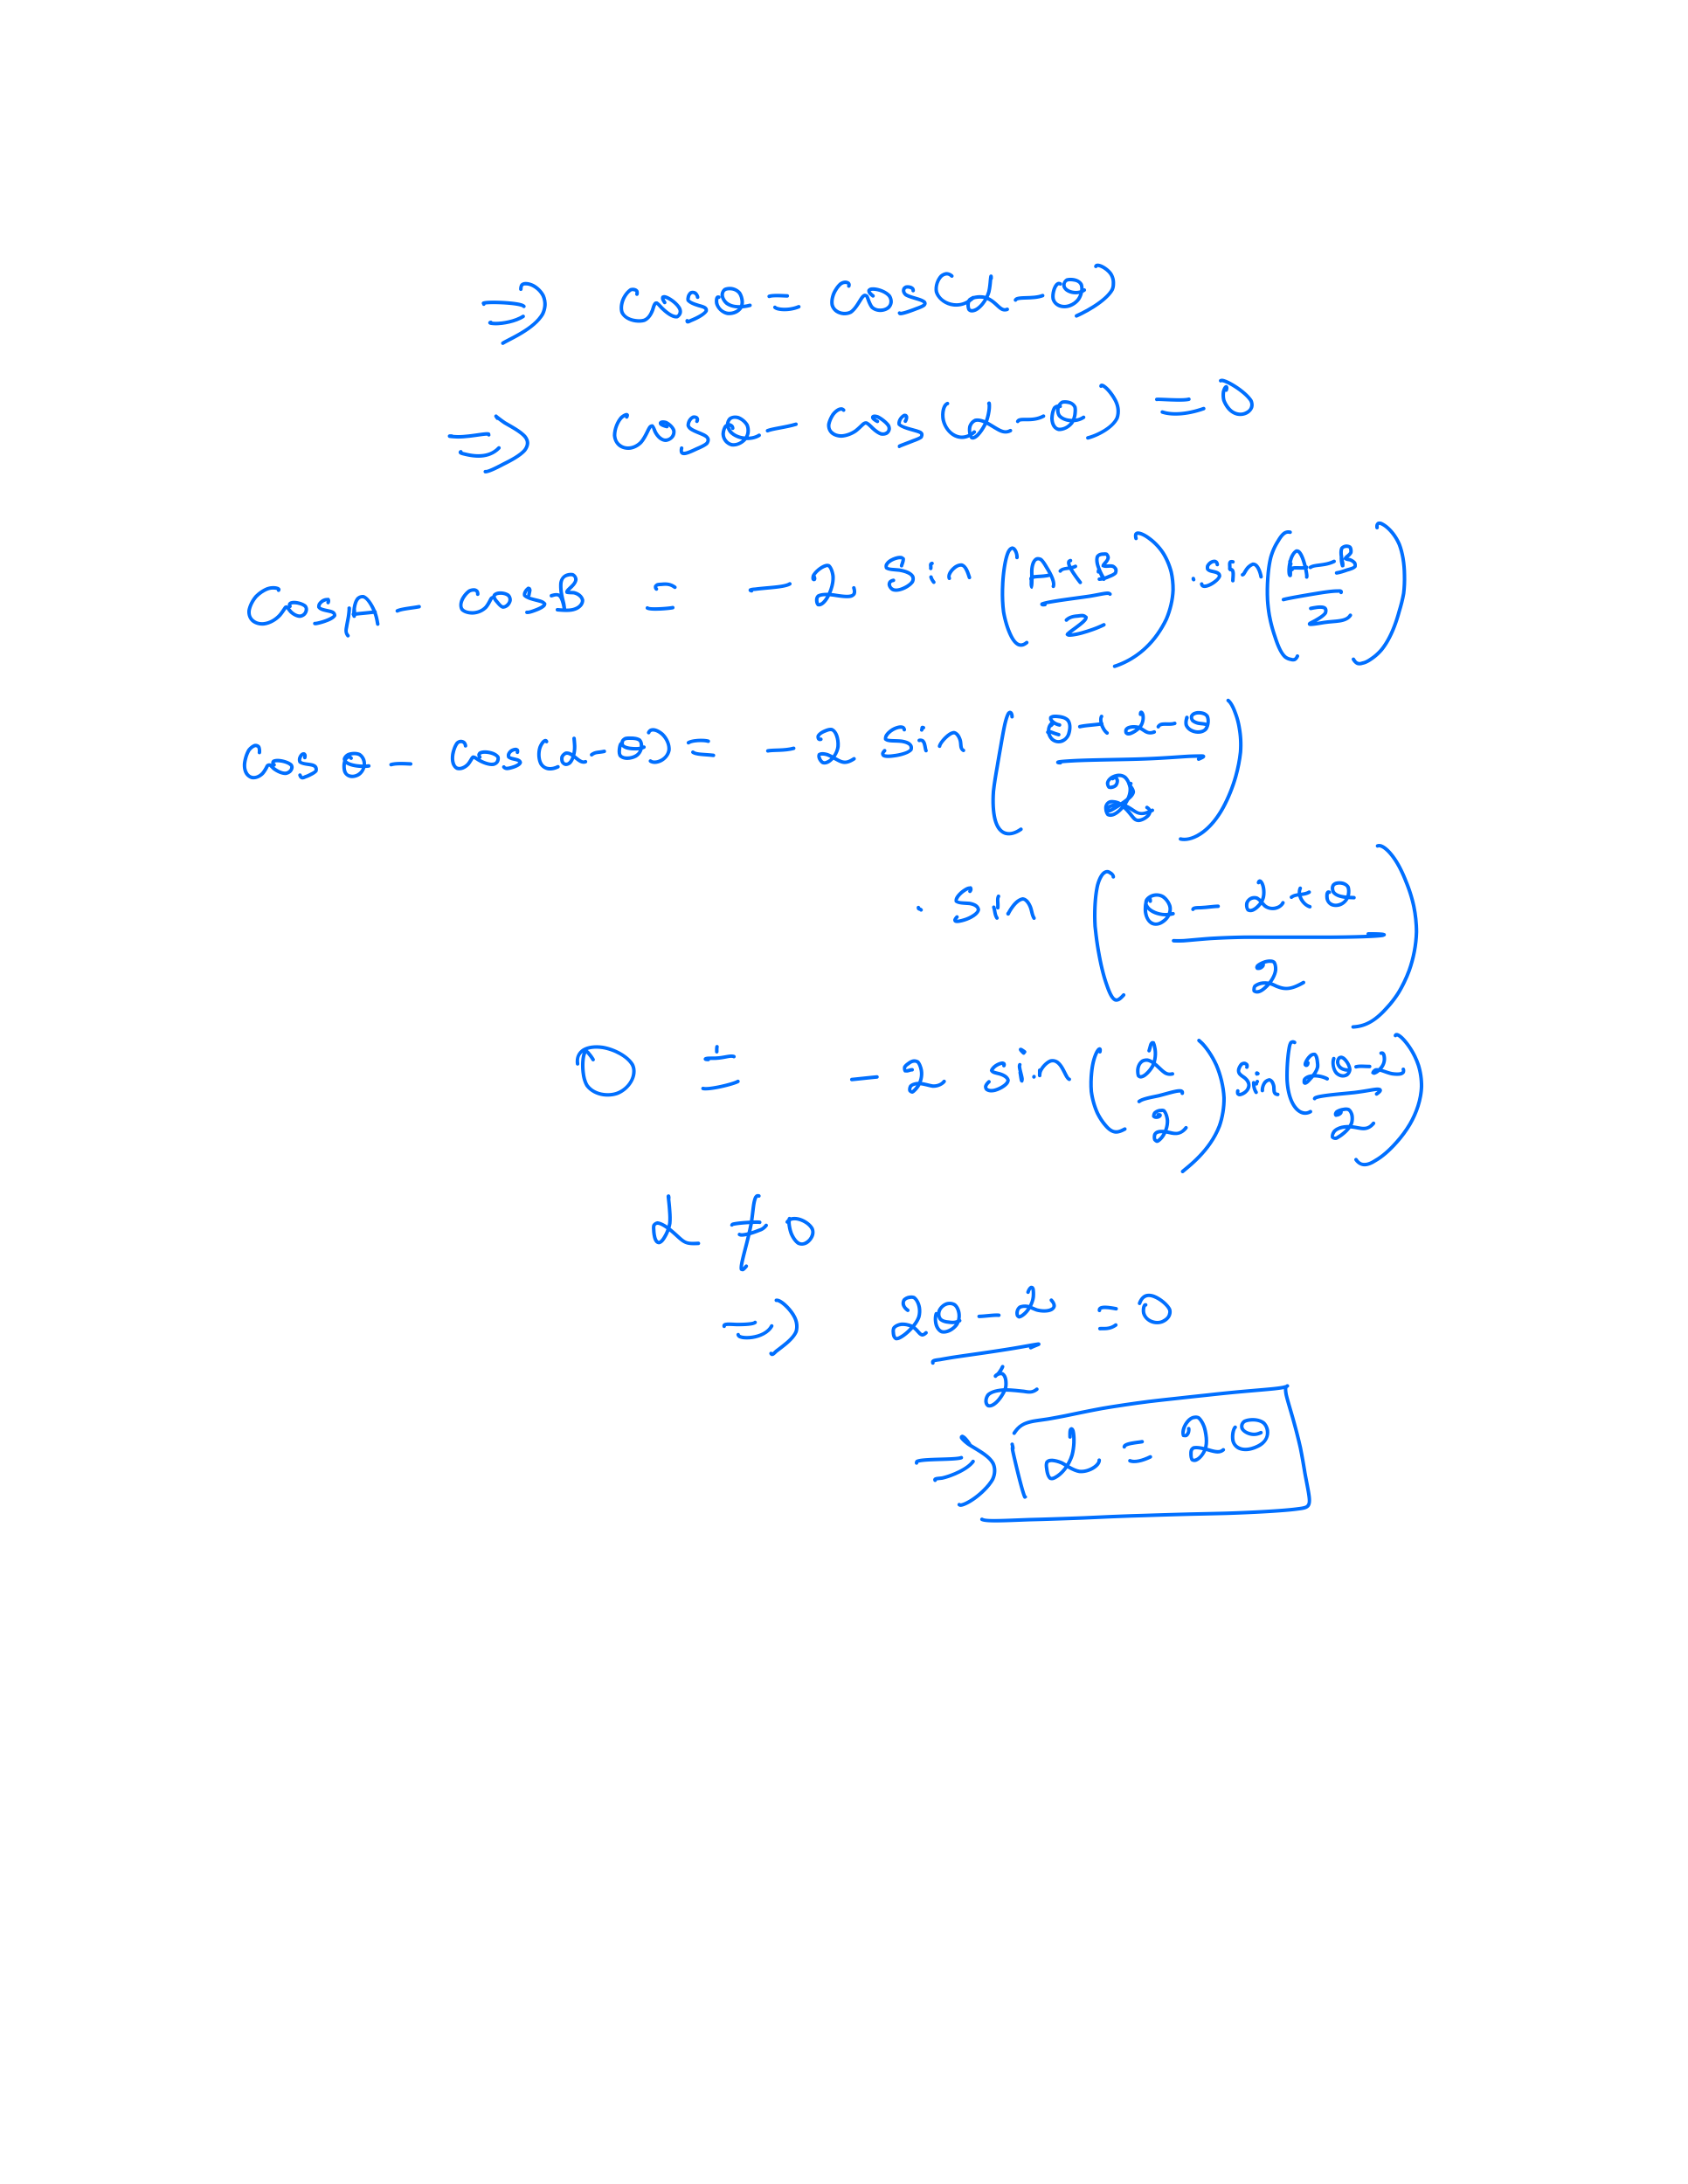 ⇒ cosθ = cos(α-θ)
⇒ cosθ - cos(α-θ) = 0
cosA - cosB = -2 sin((A+B)/2) · sin((A-B)/2)
cos θ - cos(α-θ) = -2 sin((θ+α-θ)/2)
· sin((θ-α+θ)/2)
0 = -2 sin(α/2) sin((2θ-α)/2)
α ≠ 0
⇒ (2θ-α)/2 = 0
⇒ α = 2θ